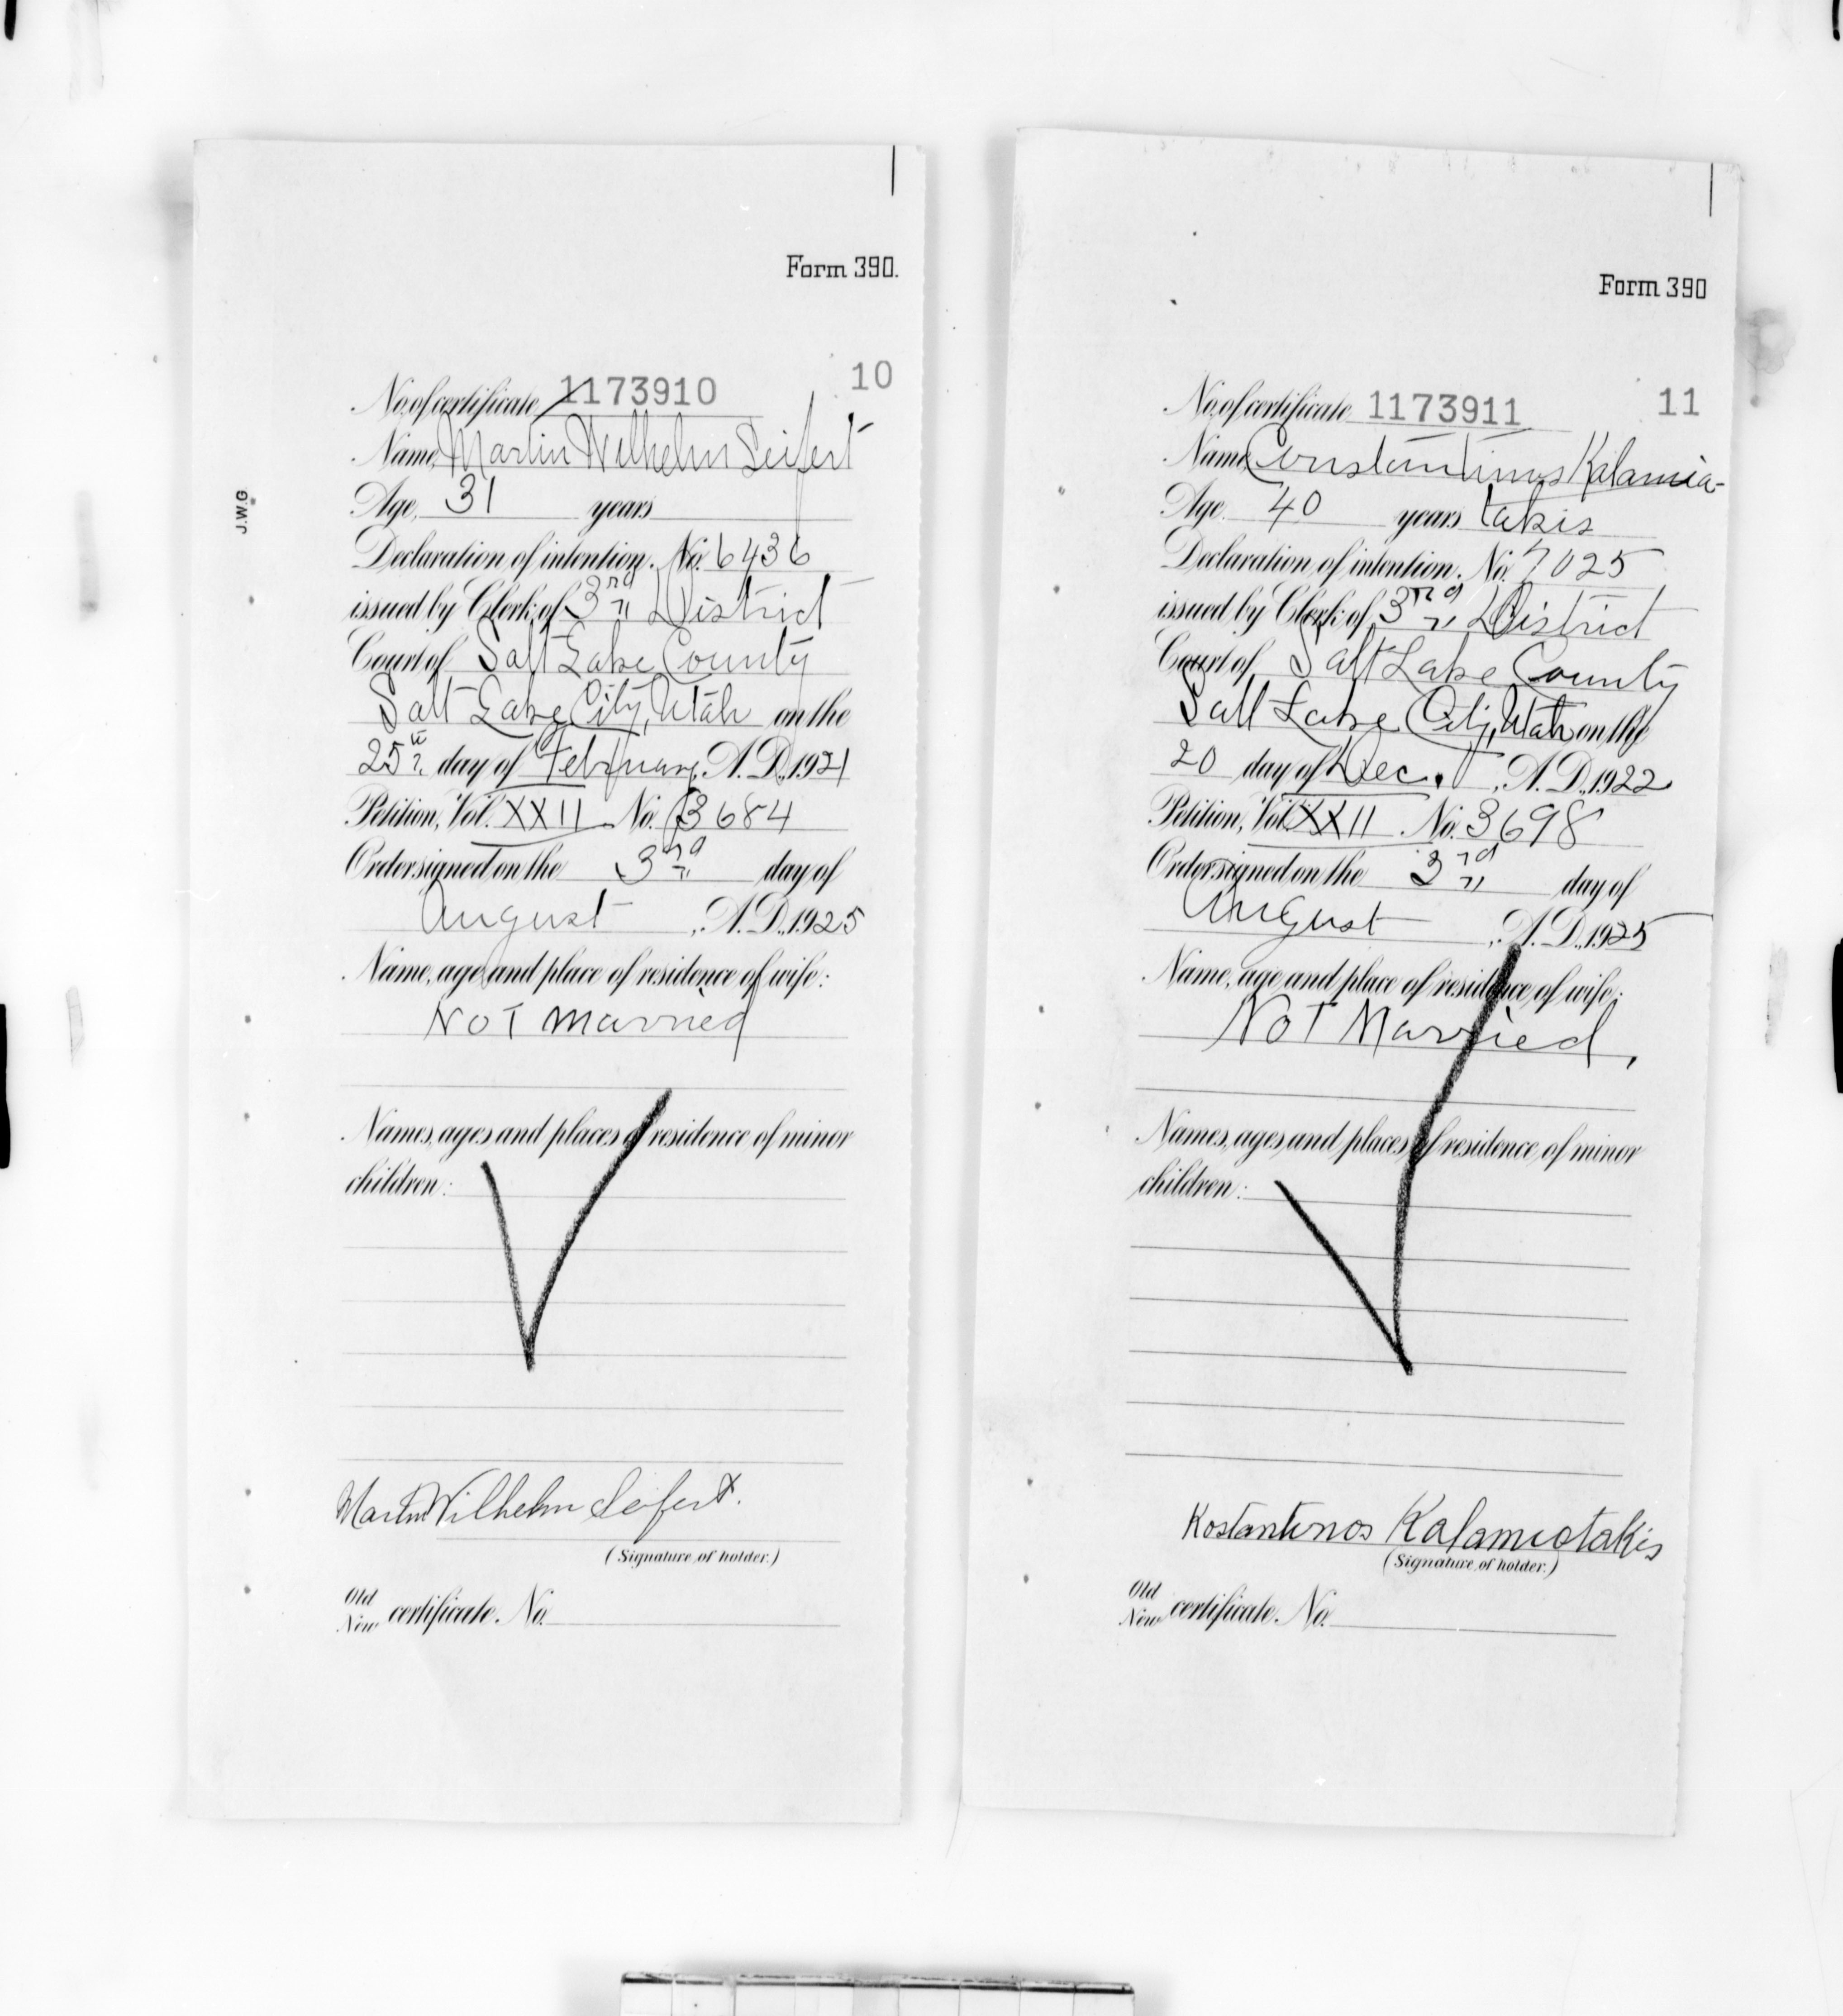 Form 390.
No. of certificate 1173910 10
Name Martin Wilhelm Seifert
Age, 31 years
Declaration of intention. No. 6436
issued by Clerk of 3rd District
Court of Salt Lake County
Salt Lake City, Utah on the
25th day of February, A.D., 1921
Petition, Vol. XXII No. 3684
Order signed on the 3rd day of
August, A.D., 1925
Name, age and place of residence of wife:
Not Married
Names, ages and places of residence of minor
children:
Martin Wilhelm Seifert.
(Signature of holder.)
Old
New certificate. No.
J.W.G.
Form 390
No. of certificate 1173911 11
Name Constantinos Kalamia-
Age. 40 years takis
Declaration of intention. No. 7025
issued by Clerk of 3rd District
Court of Salt Lake County
Salt Lake City, Utah on the
20 day of Dec., A.D., 1922
Petition, Vol. XXII No. 3698
Order signed on the 3rd day of
August, A.D., 1925
Name, age and place of residence of wife:
Not Married,
Names, ages and places of residence of minor
children:
Kostantinos Kalamiotakis
(Signature of holder.)
Old
New certificate. No.